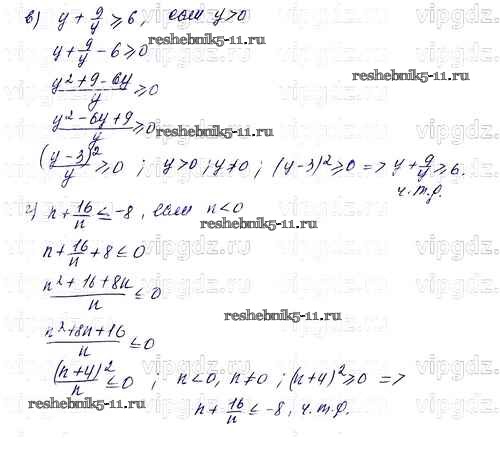 в) y + 9/y ⩾ 6, если y>0
y + 9/y - 6 ⩾ 0
(y² + 9 - 6y)/y ⩾ 0
(y² - 6y + 9)/y ⩾ 0
(y-3)²/y ⩾ 0 ; y>0 ; y≠0 ; (y-3)² ⩾ 0 => y + 9/y ⩾ 6.
ч.т.д.
г) n + 16/n ≤ -8, если n<0
n + 16/n + 8 ≤ 0
(n² + 16 + 8n)/n ≤ 0
(n² + 8n + 16)/n ≤ 0
(n+4)²/n ≤ 0 ; n<0, n≠0 ; (n+4)² ⩾ 0 =>
n + 16/n ≤ -8, ч.т.д.
reshebnik5-11.ru
reshebnik5-11.ru
reshebnik5-11.ru
reshebnik5-11.ru
reshebnik5-11.ru
reshebnik5-11.ru